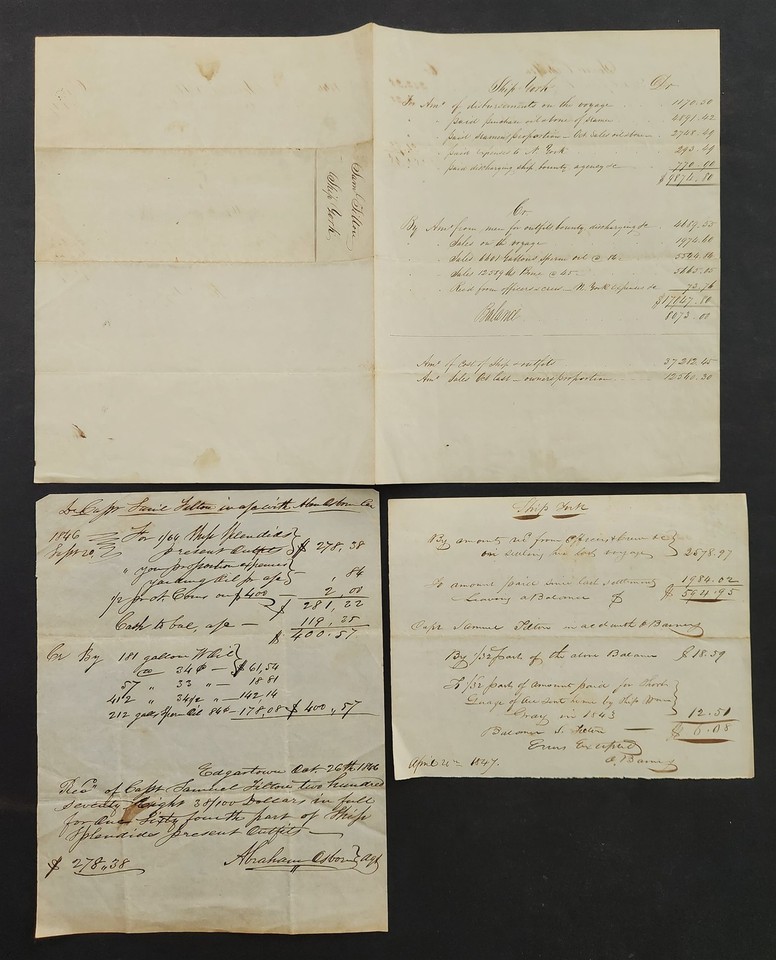 Ship York Dr
For Amt of disbursements on the voyage 1170.30
" paid purchase oil & bone of Seamen 4891.42
" paid Seamens proportion Oct Sales oil & bone 2748.49
" paid expenses to N. York 293.49
" paid discharging ship bounty agency &c 770.00
$9874.80
Cr.
By Amt from men for outfits bounty discharging &c
" Sales on the voyage 1974.60
" Sales 6601 Gallons Sperm oil @
" Sales 12559 lbs Bone @ 45
" Recd from officers & crew N. York expenses &c
$17047.80
Balance 8073.00
Amt of Cost of Ship & outfits 37282.45
Amt Sales Oct last owners proportion 12340.30
Saml Tilton
Ship York
Dr Capt Saml Tilton in a/c with Abm Osborn Cr
1846
Sept 20 For 1/64 Ship Splendids
present Outfits $278,38
" your proportion expenses
Oil for a/c ,84
1/2 pr ct. Coms on $400 2,00
$281,22
Cash to bal, a/c 119,35
$400.57
Cr By 181 gallons Whale
@ 34¢ $61,54
57 " 33 " 18.81
412 " 34½ " 142,14
212 galls Sperm Oil 84¢ 178,08 $400,,57
Edgartown Oct. 26th 1846
Recd of Capt Samuel Tilton two hundred
Seventy Eight 38/100 Dollars in full
for One Sixty fourth part of Ship
Splendids present Outfits
$278,,38 Abraham Osborn Agt
Ship York
By amount recd from Officers & crew &c
on settling her last voyage 2578.97
To amount paid since last settlement 1984.02
Leaving a Balance of $594.95
Capt Samuel Tilton in a/c with O Barnes
By 1/32 part of the above Balance $18.59
To 1/32 part of amount paid for
by Ship Wm
Gray in 1843 12.51
Balance S. Tilton $6.08
Errors Excepted
April 1847. O. Barnes